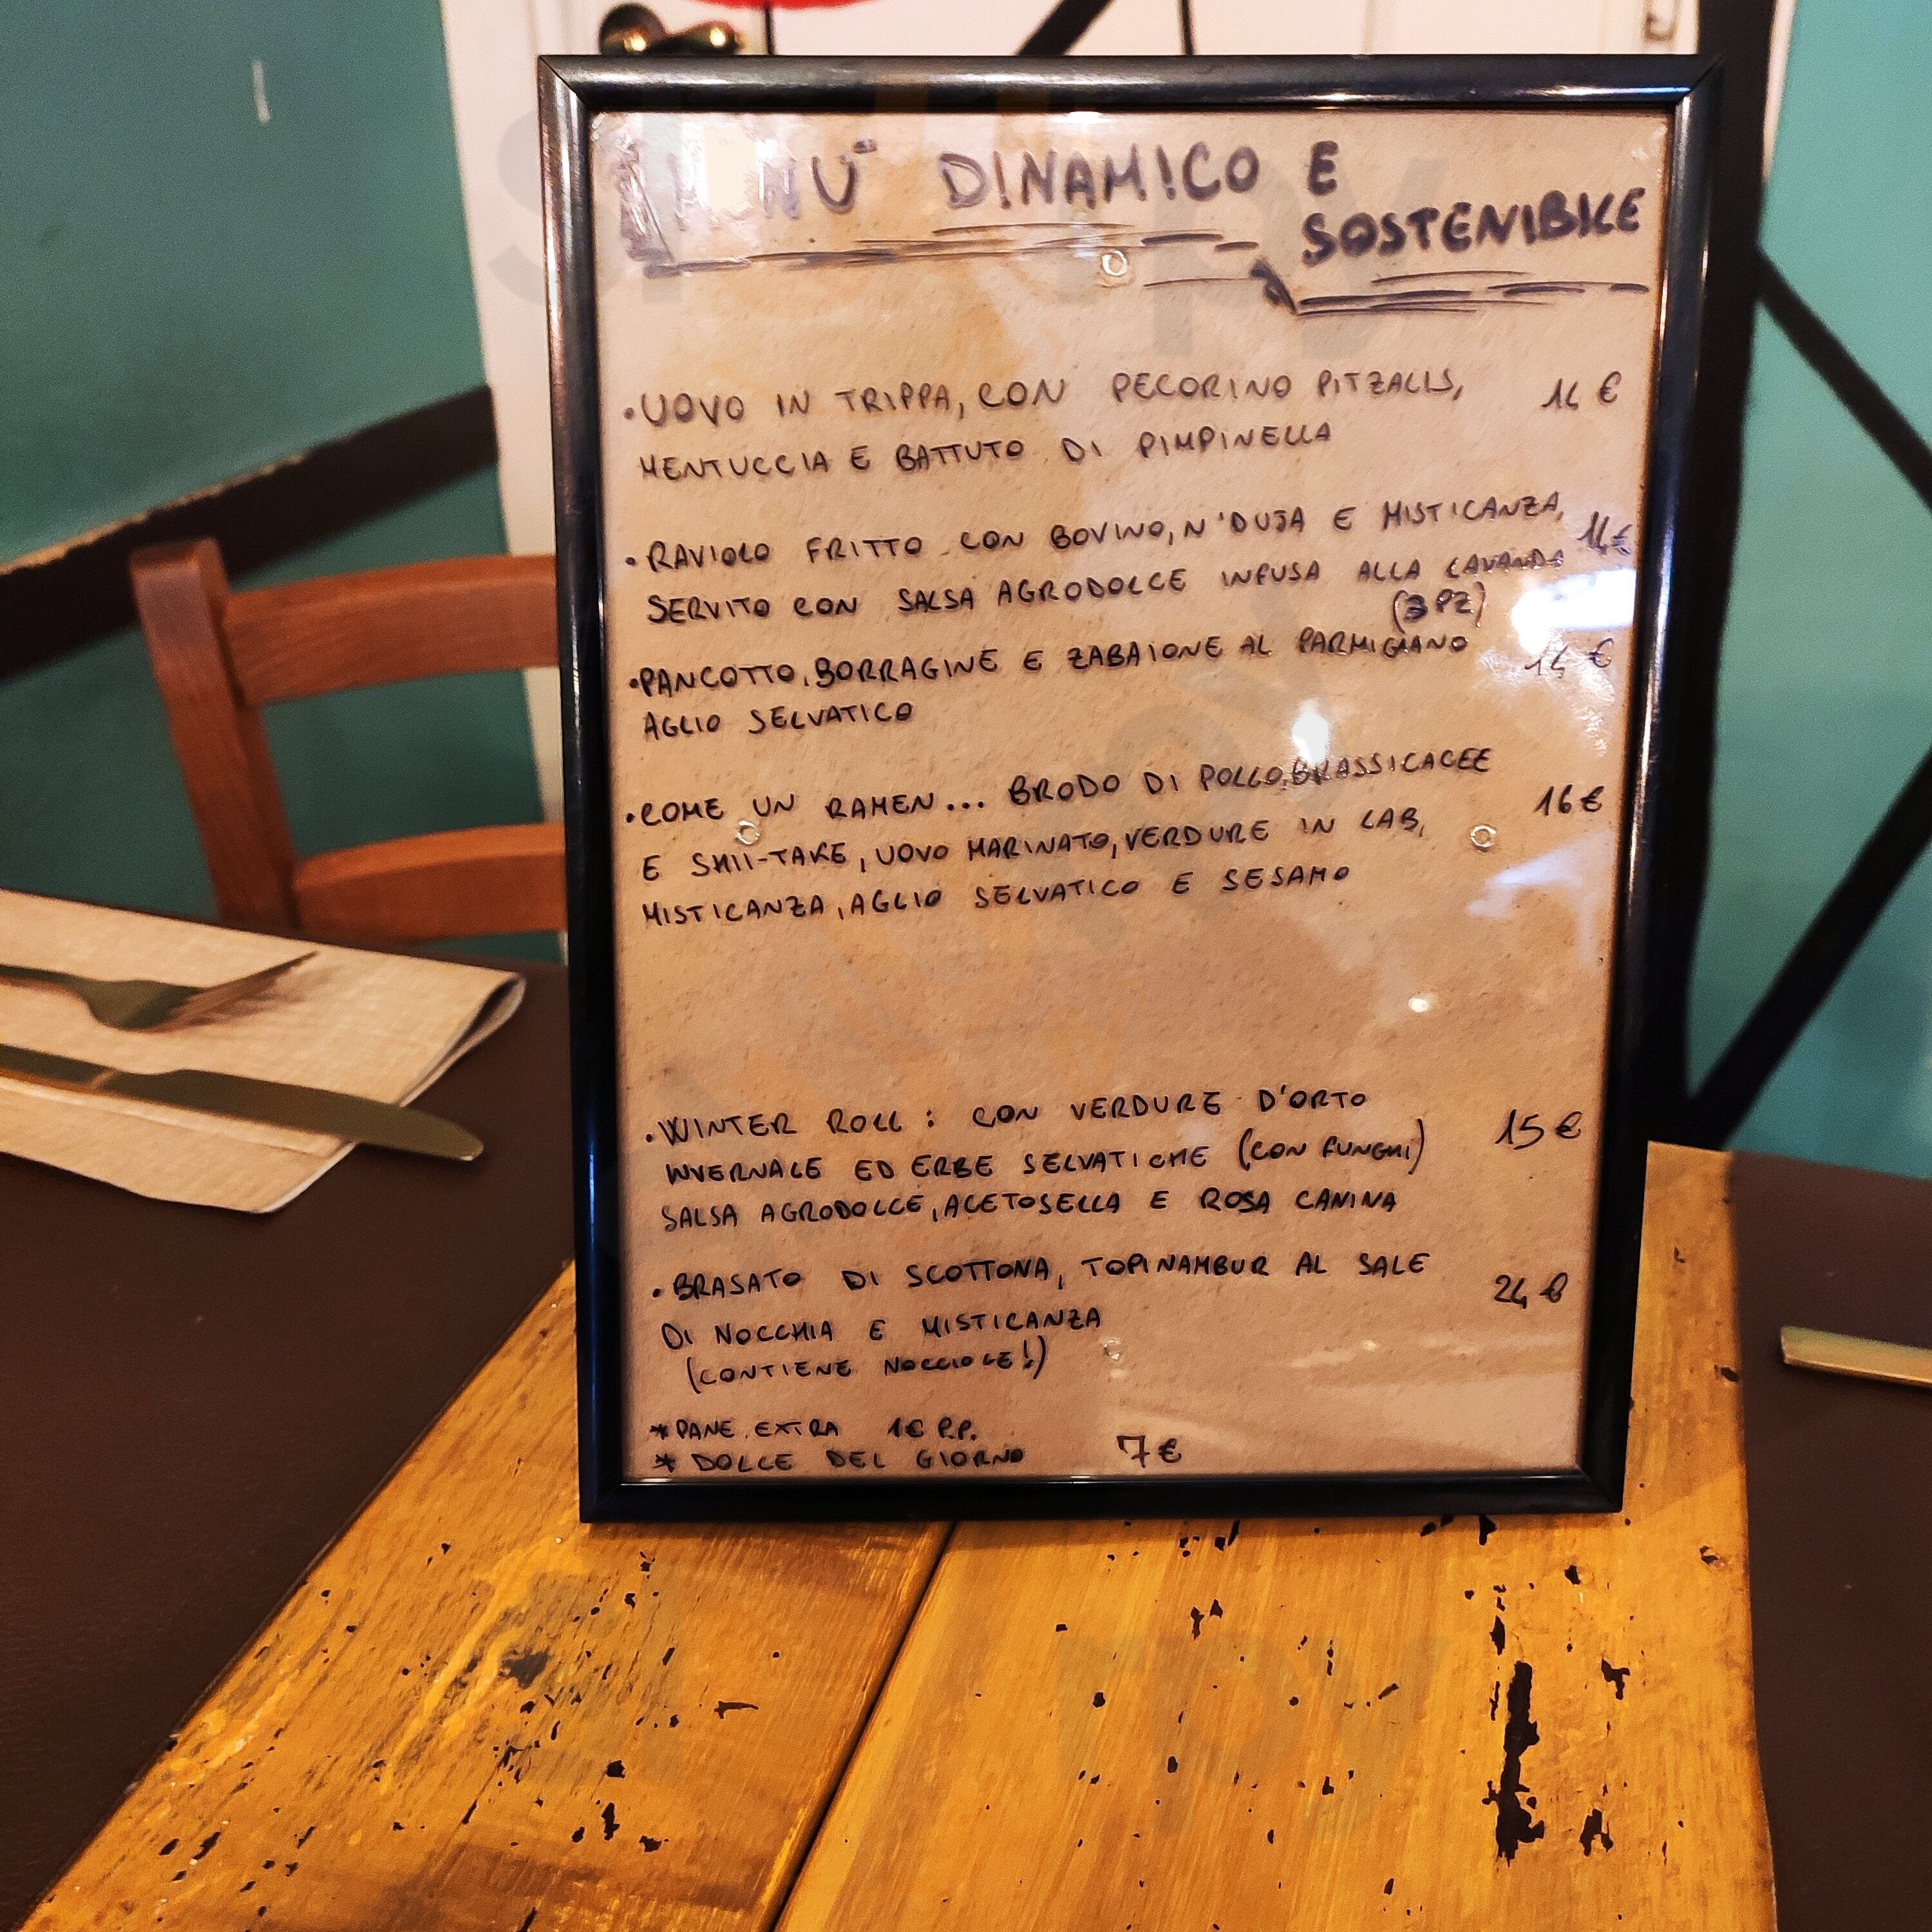 MENÙ DINAMICO E
SOSTENIBILE
•UOVO IN TRIPPA, CON PECORINO PITZALIS, 14 €
MENTUCCIA E BATTUTO DI PIMPINELLA
•RAVIOLO FRITTO CON BOVINO, N'DUJA E MISTICANZA, 14€
SERVITO CON SALSA AGRODOLCE INFUSA ALLA LAVANDA
(3 PZ)
•PANCOTTO, BORRAGINE E ZABAIONE AL PARMIGIANO 14 €
AGLIO SELVATICO
•COME UN RAMEN... BRODO DI POLLO, BRASSICACEE 16€
E SHII-TAKE, UOVO MARINATO, VERDURE IN LAB,
MISTICANZA, AGLIO SELVATICO E SESAMO
•WINTER ROLL: CON VERDURE D'ORTO 15€
INVERNALE ED ERBE SELVATICHE (CON FUNGHI)
SALSA AGRODOLCE, ACETOSELLA E ROSA CANINA
•BRASATO DI SCOTTONA, TOPINAMBUR AL SALE 24 €
DI NOCCHIA E MISTICANZA
(CONTIENE NOCCIOLE!)
*PANE EXTRA 1€ P.P.
* DOLCE DEL GIORNO 7€